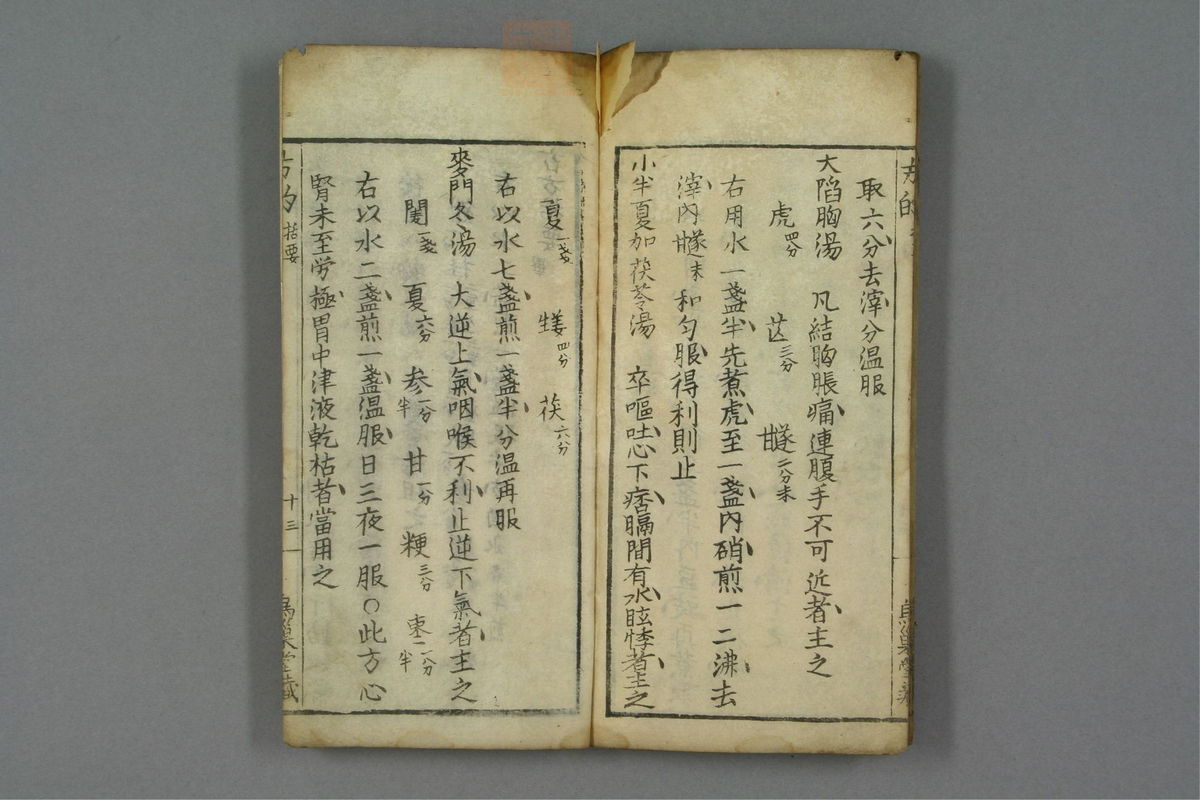 取六分去滓分温服
大陷胸湯 凡結胸脹痛連腹手不可近者主之
虎四分 苡三分 𤮾二分末
右用水一盞半先煮虎至一盞內硝煎一二沸去
滓內𤮾末和匀服得利則止
小半夏加茯苓湯 卒嘔吐心下痞膈間有水眩悸者主之
夏一戔 生姜四分 茯六分
右以水七盞煎一盞半分温再服
麥門冬湯 大逆上氣咽喉不利止逆下氣者主之
闅一戔 夏六分 参一分半 甘一分 粳三分 棗二分半
右以水二盞煎一盞温服日三夜一服○此方心
腎未至労極胃中津液乾枯者當用之
方的 括要
十三